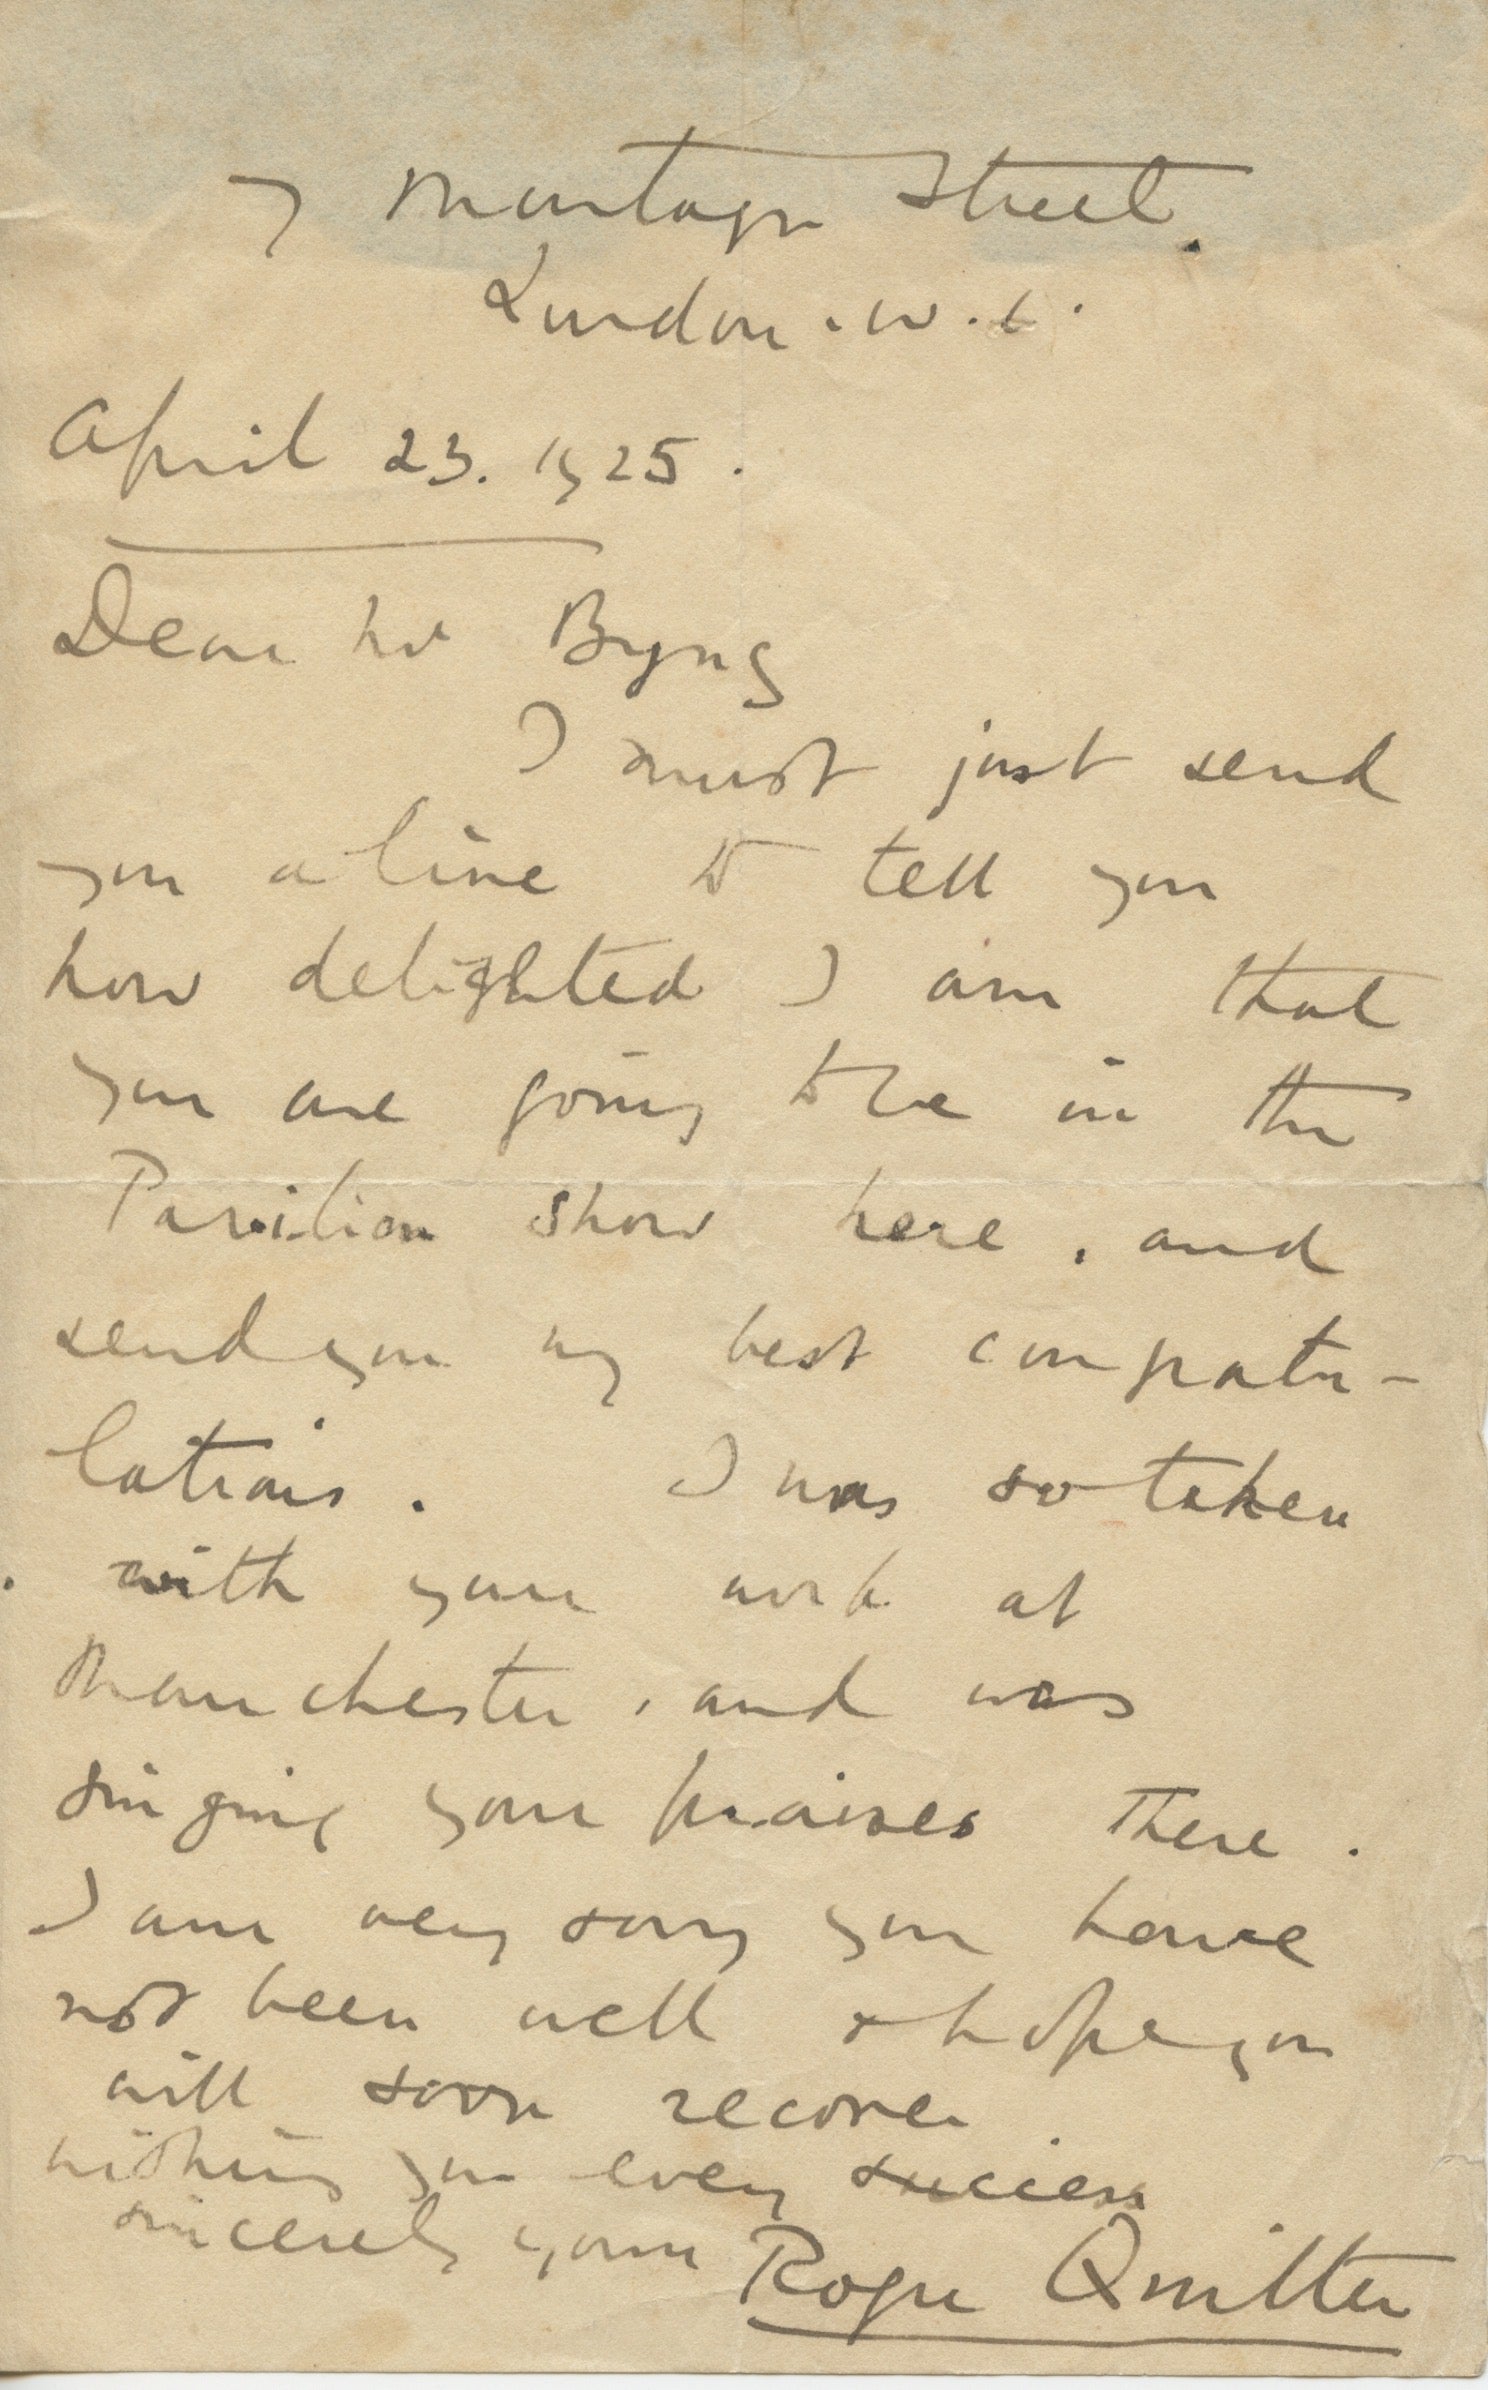 7 Montagu Street.
London. W.1.
April 23. 1925.
Dear Mr Byng
I must just send
you a line to tell you
how delighted I am that
you are going to be in the
Pavilion show here, and
send you my best congratu-
lations. I was so taken
with your work at
Manchester, and was
singing your praises there.
I am very sorry you have
not been well & hope you
will soon recover
wishing you every success
sincerely yours Roger Quilter